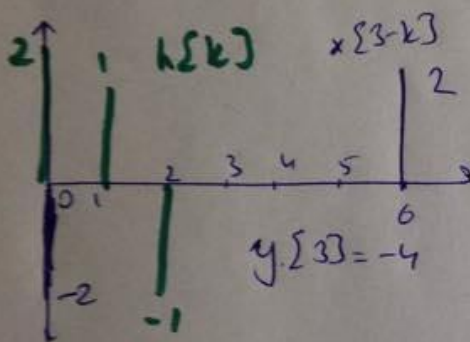 2 1 h[k] x[3-k]
2
0 1 2 3 4 5 6
-2 y[3] = -4
-1